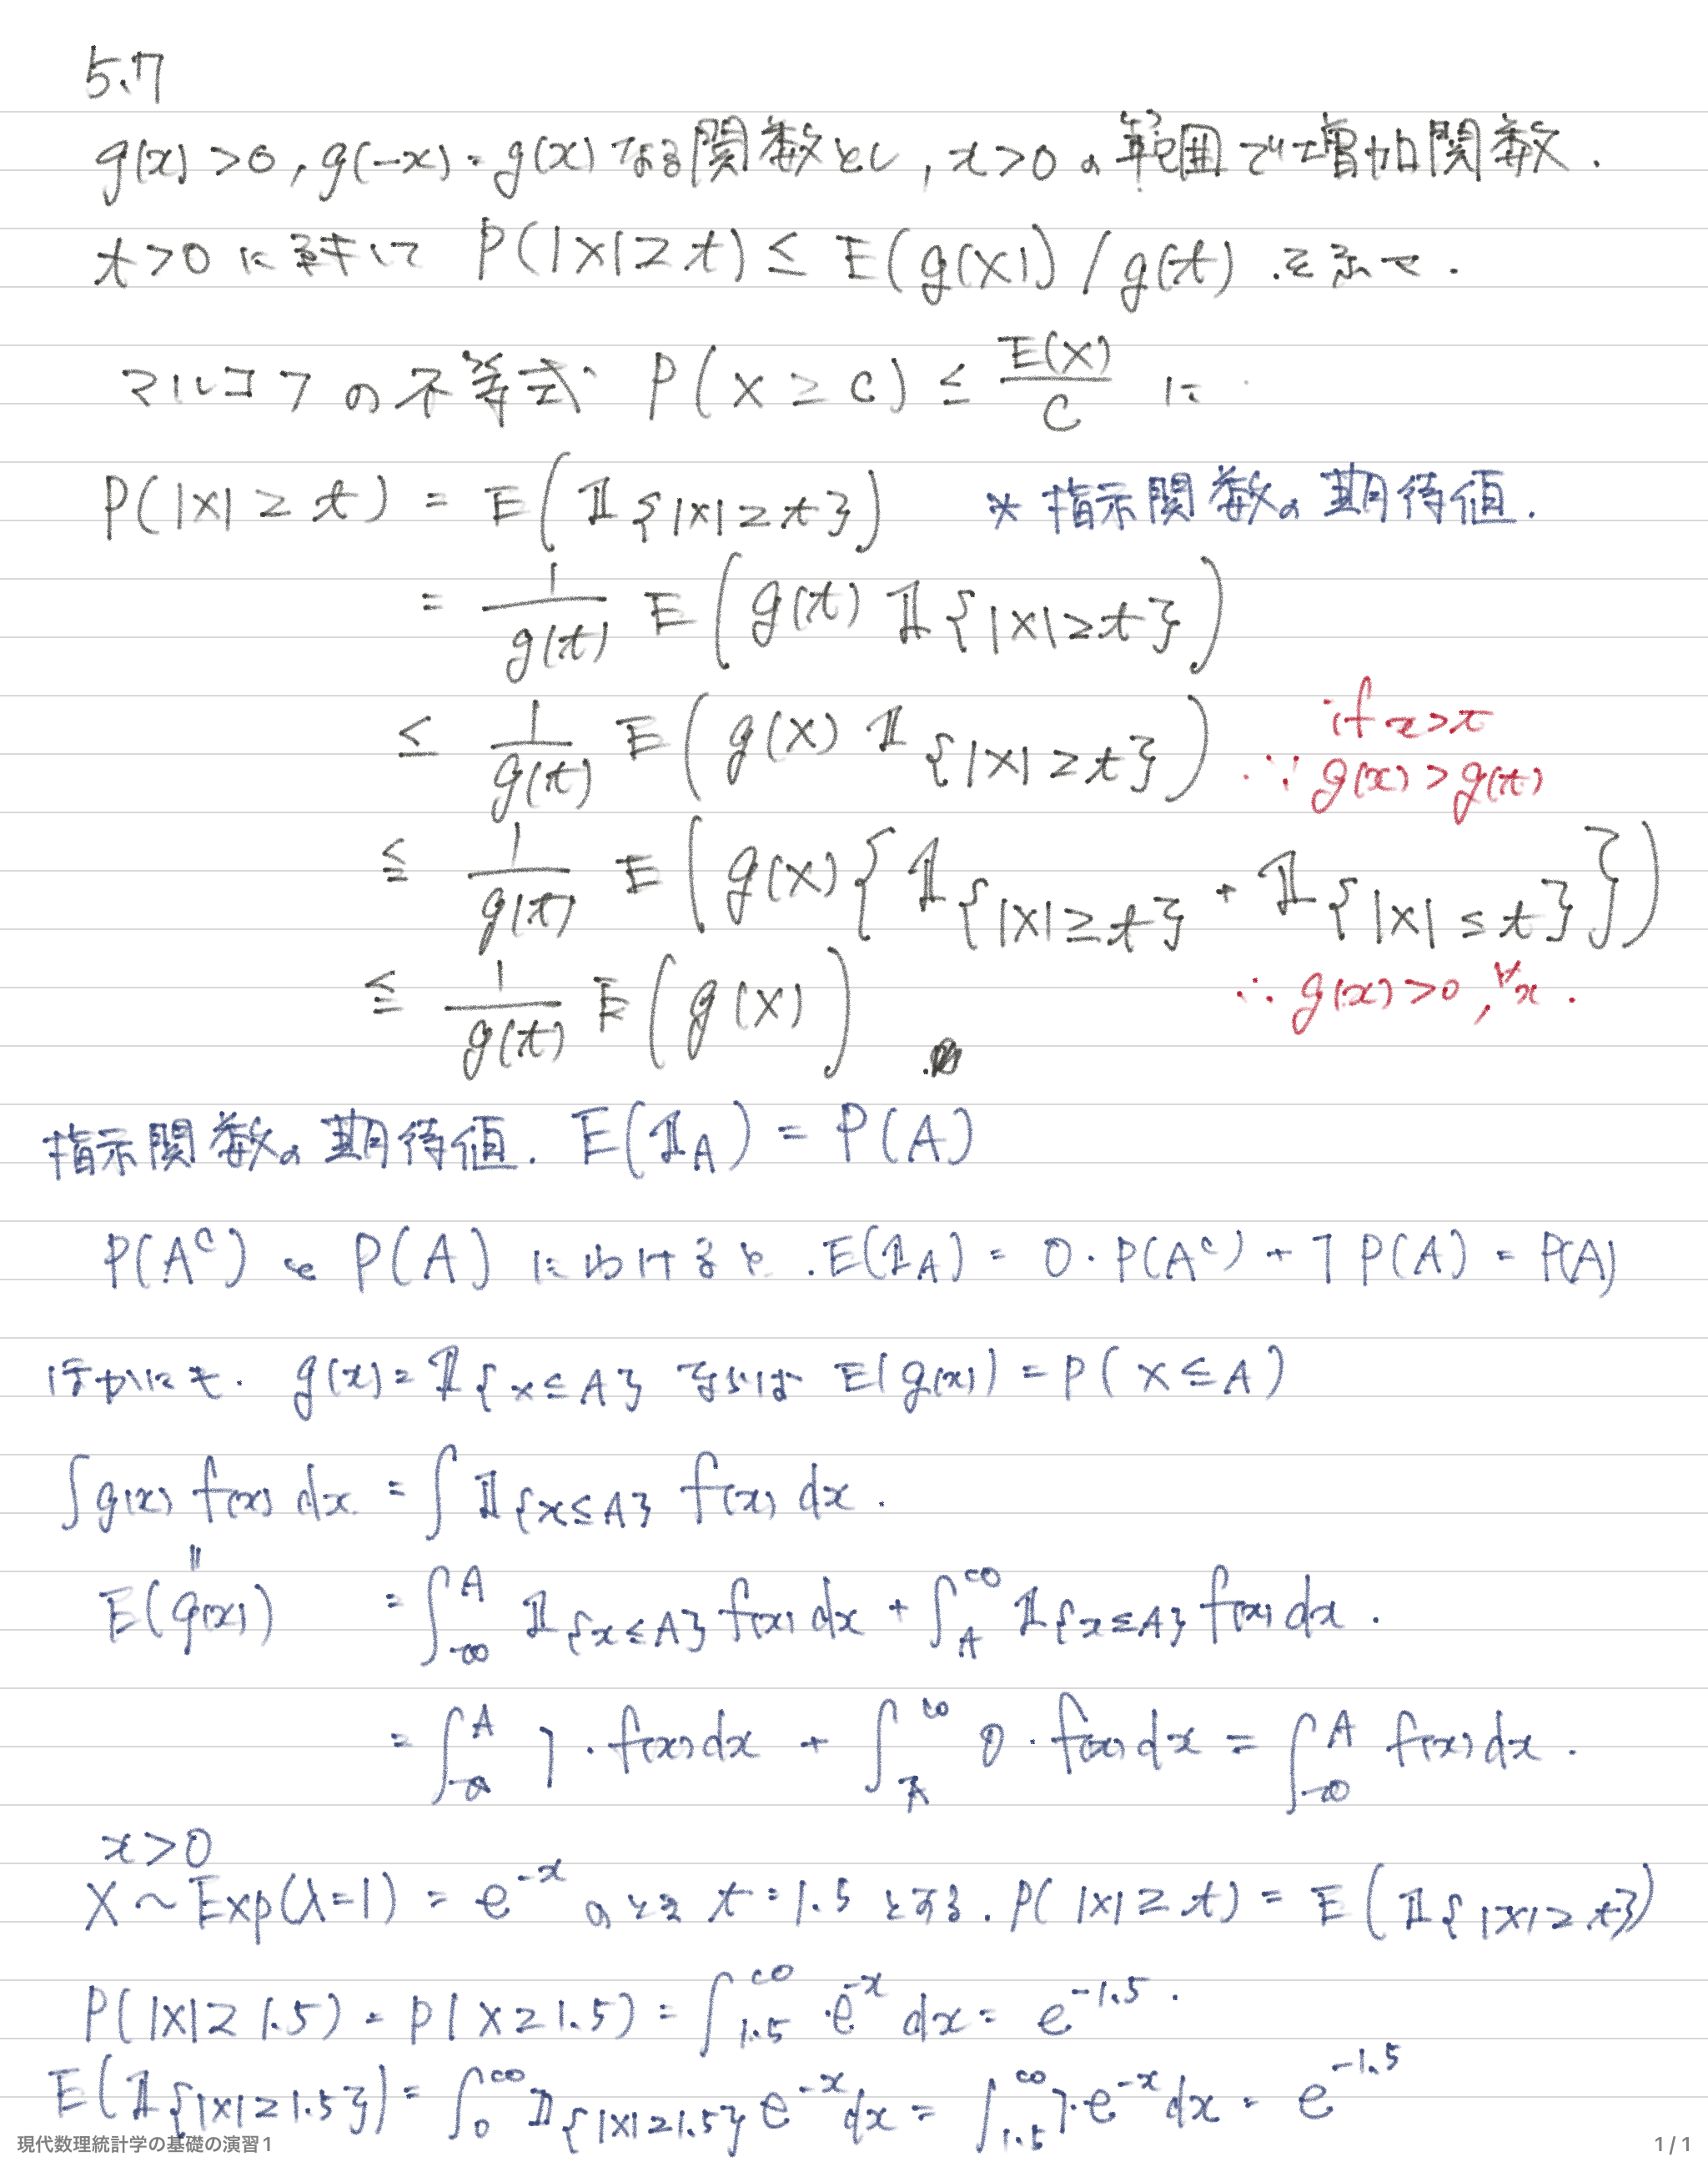 5.7
g(x) > 0, g(-x) = g(x) なる関数とし, x > 0 の範囲で増加関数.
t > 0 に対して P(|X| ≥ t) ≤ E(g(X)) / g(t) .を示せ.
マルコフの不等式 P(X ≥ c) ≤ E(X)/c に
P(|X| ≥ t) = E(𝟙{|X| ≥ t}) * 指示関数の期待値.
= 1/g(t) E(g(t) 𝟙{|X| ≥ t})
≤ 1/g(t) E(g(X) 𝟙{|X| ≥ t}) if x > t
∵ g(x) > g(t)
≦ 1/g(t) E(g(X){𝟙{|X| ≥ t} + 𝟙{|X| ≤ t}})
≦ 1/g(t) E(g(X)) ∴ g(x) > 0, ∀x.
指示関数の期待値. E(𝟙A) = P(A)
P(Aᶜ) と P(A) にわけると. E(𝟙A) = 0・P(Aᶜ) + 1 P(A) = P(A)
ほかにも. g(x) = 𝟙{x ≤ A} ならば E(g(x)) = P(X ≤ A)
∫g(x) f(x) dx = ∫ 𝟙{x ≤ A} f(x) dx.
॥
E(g(x)) = ∫_{-∞}^{A} 𝟙{x ≤ A} f(x) dx + ∫_{A}^{∞} 𝟙{x ≤ A} f(x) dx.
= ∫_{-∞}^{A} 1・f(x) dx + ∫_{A}^{∞} 0・f(x) dx = ∫_{-∞}^{A} f(x) dx.
x > 0
X ~ Exp(λ=1) = e^{-x} のとき t = 1.5 とする. P(|X| ≥ t) = E(𝟙{|X| ≥ t})
P(|X| ≥ 1.5) = P(X ≥ 1.5) = ∫_{1.5}^{∞} e^{-x} dx = e^{-1.5}.
E(𝟙{|X| ≥ 1.5}) = ∫_{0}^{∞} 𝟙{|X| ≥ 1.5} e^{-x} dx = ∫_{1.5}^{∞} 1・e^{-x} dx = e^{-1.5}
現代数理統計学の基礎の演習1
1 / 1